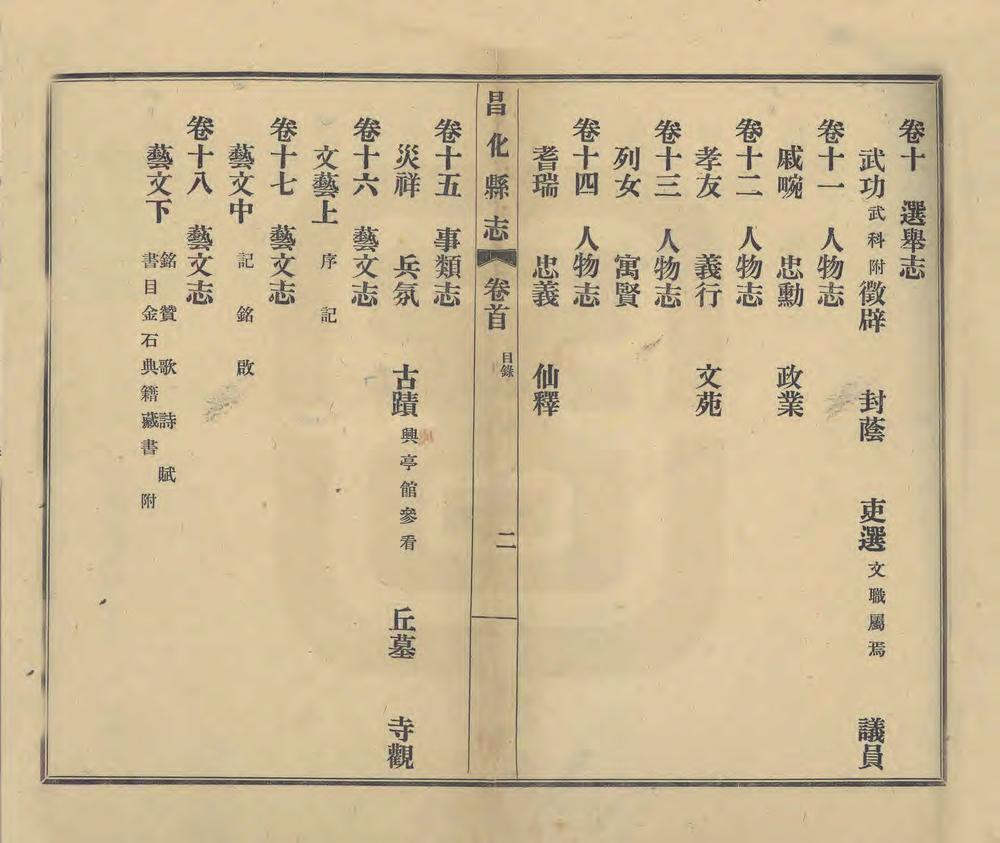 卷十　選舉志
武功武科附徵辟　封蔭　吏選文職屬焉　議員
卷十一　人物志
戚畹　忠勳　政業
卷十二　人物志
孝友　義行　文苑
卷十三　人物志
列女　寓賢
卷十四　人物志
耆瑞　忠義　仙釋
昌化縣志　卷首　目錄　二
卷十五　事類志
災祥　兵氛　古蹟興亭館參看　丘墓　寺觀
卷十六　藝文志
文藝上　序　記
卷十七　藝文志
藝文中　記　銘　啟
卷十八　藝文志
藝文下　銘　贊　歌　詩　賦
書目金石典籍藏書附